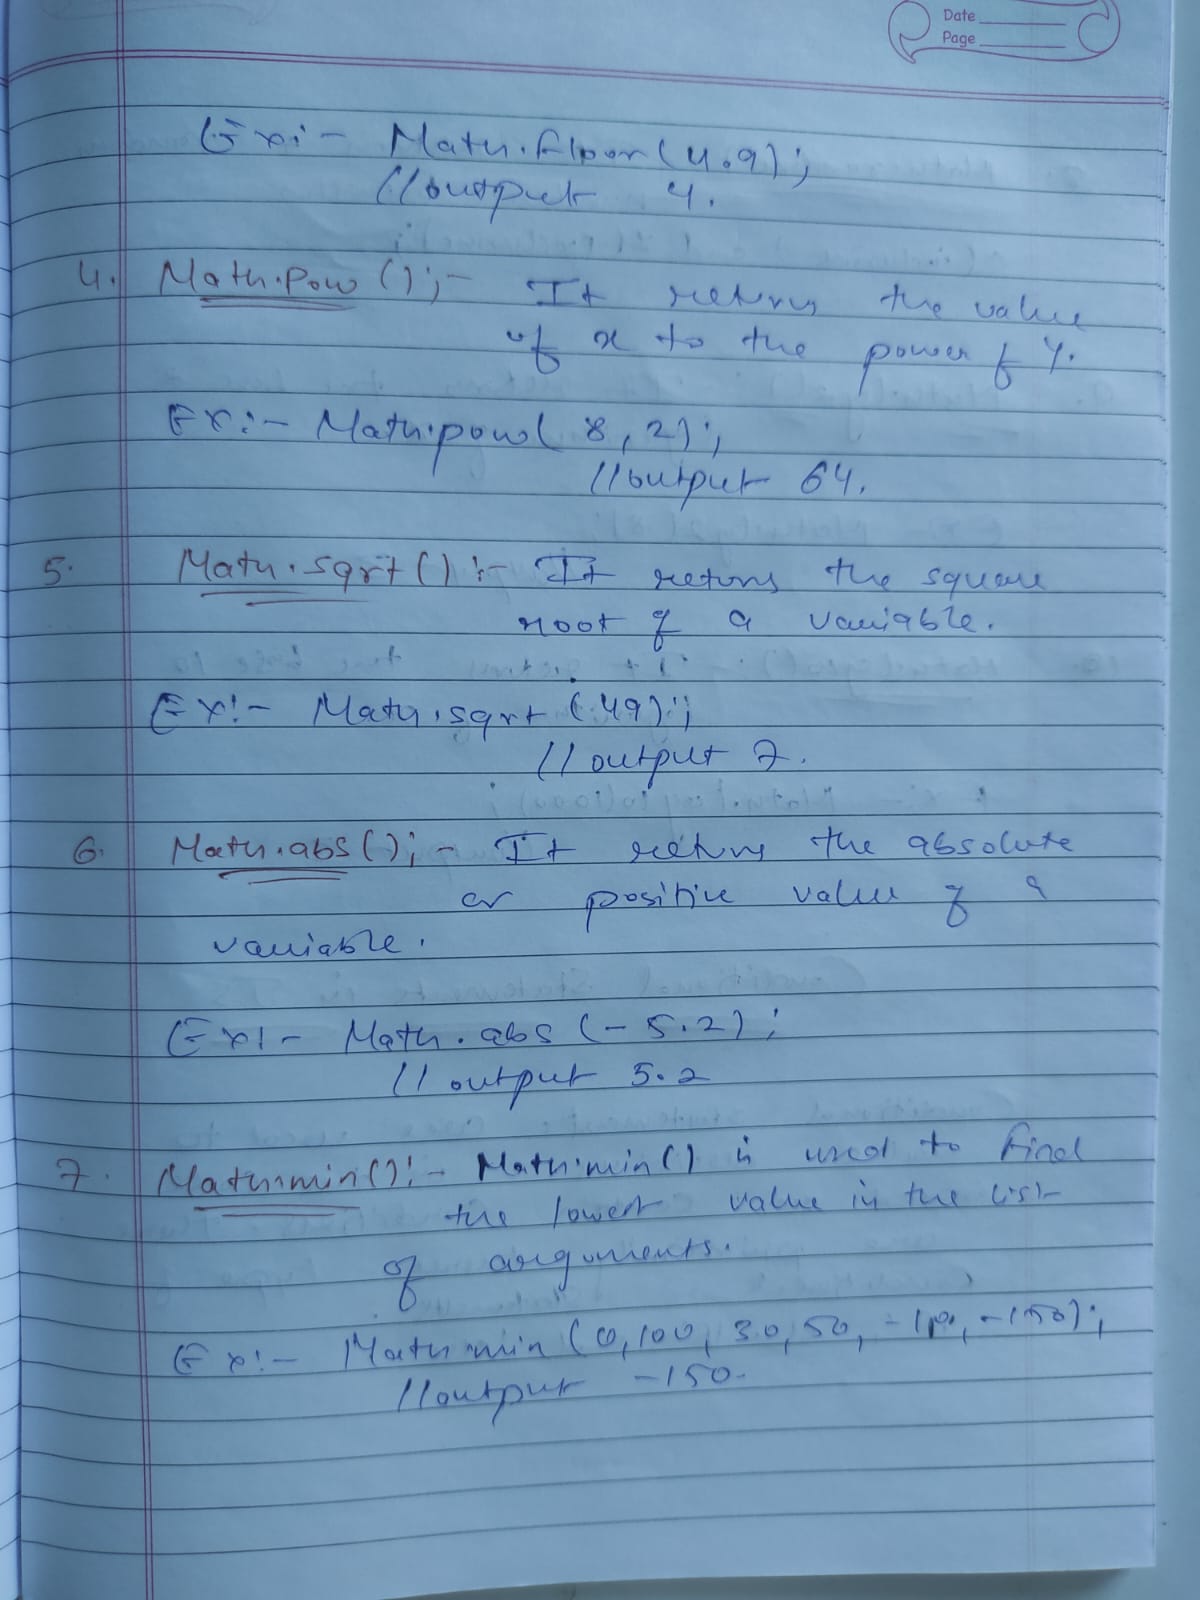 Date
Page
Ex:- Math.floor(4.9);
//output 4.
4. Math.pow();- It returns the value
of x to the power of y.
Ex:- Math.pow( 8, 2);
//output 64.
5. Math.sqrt():- It returns the square
root of a variable.
Ex:- Math.sqrt (49);
// output 7.
6. Math.abs();- It returns the absolute
or positive value of a
variable.
Ex:- Math.abs (-5.2);
// output 5.2
7. Math.min():- Math.min() is used to find
the lowest value in the list
of arguments.
Ex:- Math min (0, 100, 30, 50, -150);
//output -150.